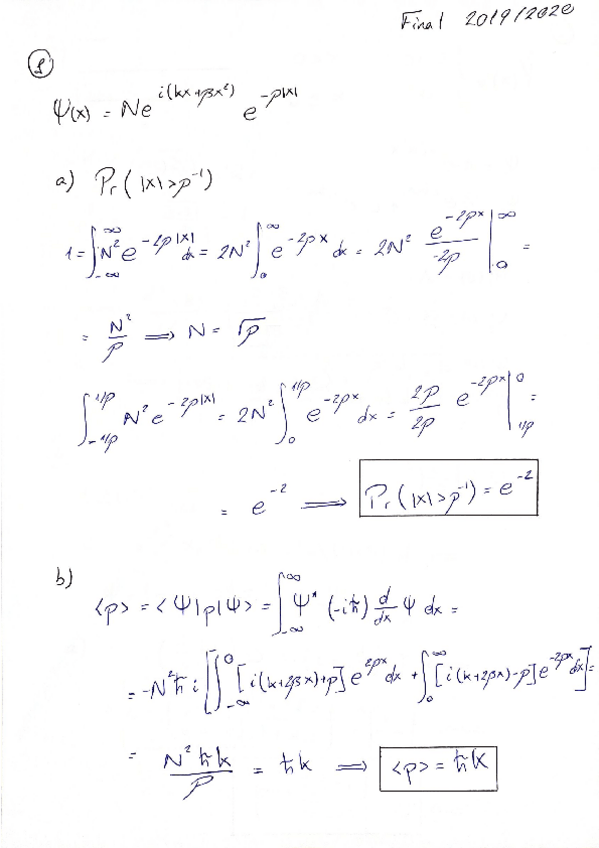 Final 2019/2020
1
Ψ(x) = Ne^{i(kx+βx²)} e^{-p|x|}
a) Pr(|x|>p⁻¹)
1 = ∫_{-∞}^{∞} N² e^{-2p|x|} dx = 2N² ∫_0^∞ e^{-2px} dx = 2N² e^{-2px}/-2p |_0^∞ =
= N²/p ⟹ N = √p
∫_{-1/p}^{1/p} N² e^{-2p|x|} = 2N² ∫_0^{1/p} e^{-2px} dx = 2p/2p e^{-2px} |_{1/p}^0 =
= e⁻² ⟹ Pr(|x|>p⁻¹) = e⁻²
b)
<p> = <Ψ|p|Ψ> = ∫_{-∞}^{∞} Ψ* (-iħ) d/dx Ψ dx =
= -N²ħi [∫_{-∞}^0 [i(k+2βx)+p] e^{2px} dx + ∫_0^∞ [i(k+2βx)-p] e^{-2px} dx] =
= N²ħk/p = ħk ⟹ <p> = ħk